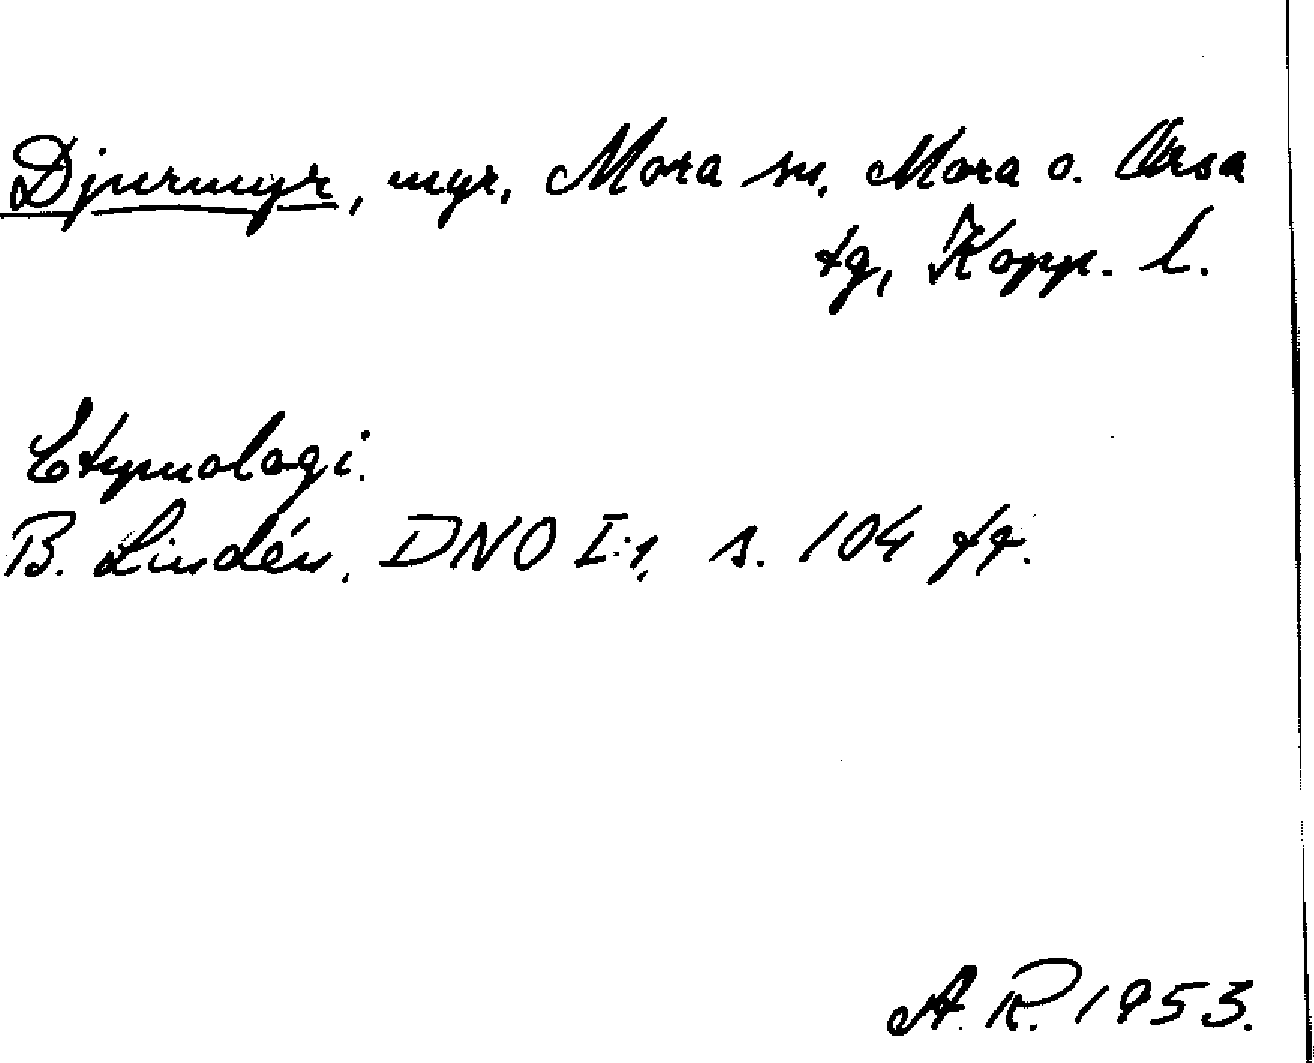 Djurmyr, myr, Mora sn, Mora o. Orsa
tg, Kopp. l.
Etymologi.
B. Lindén, DNO I:1, s. 104 ff.
A. R. 1953.